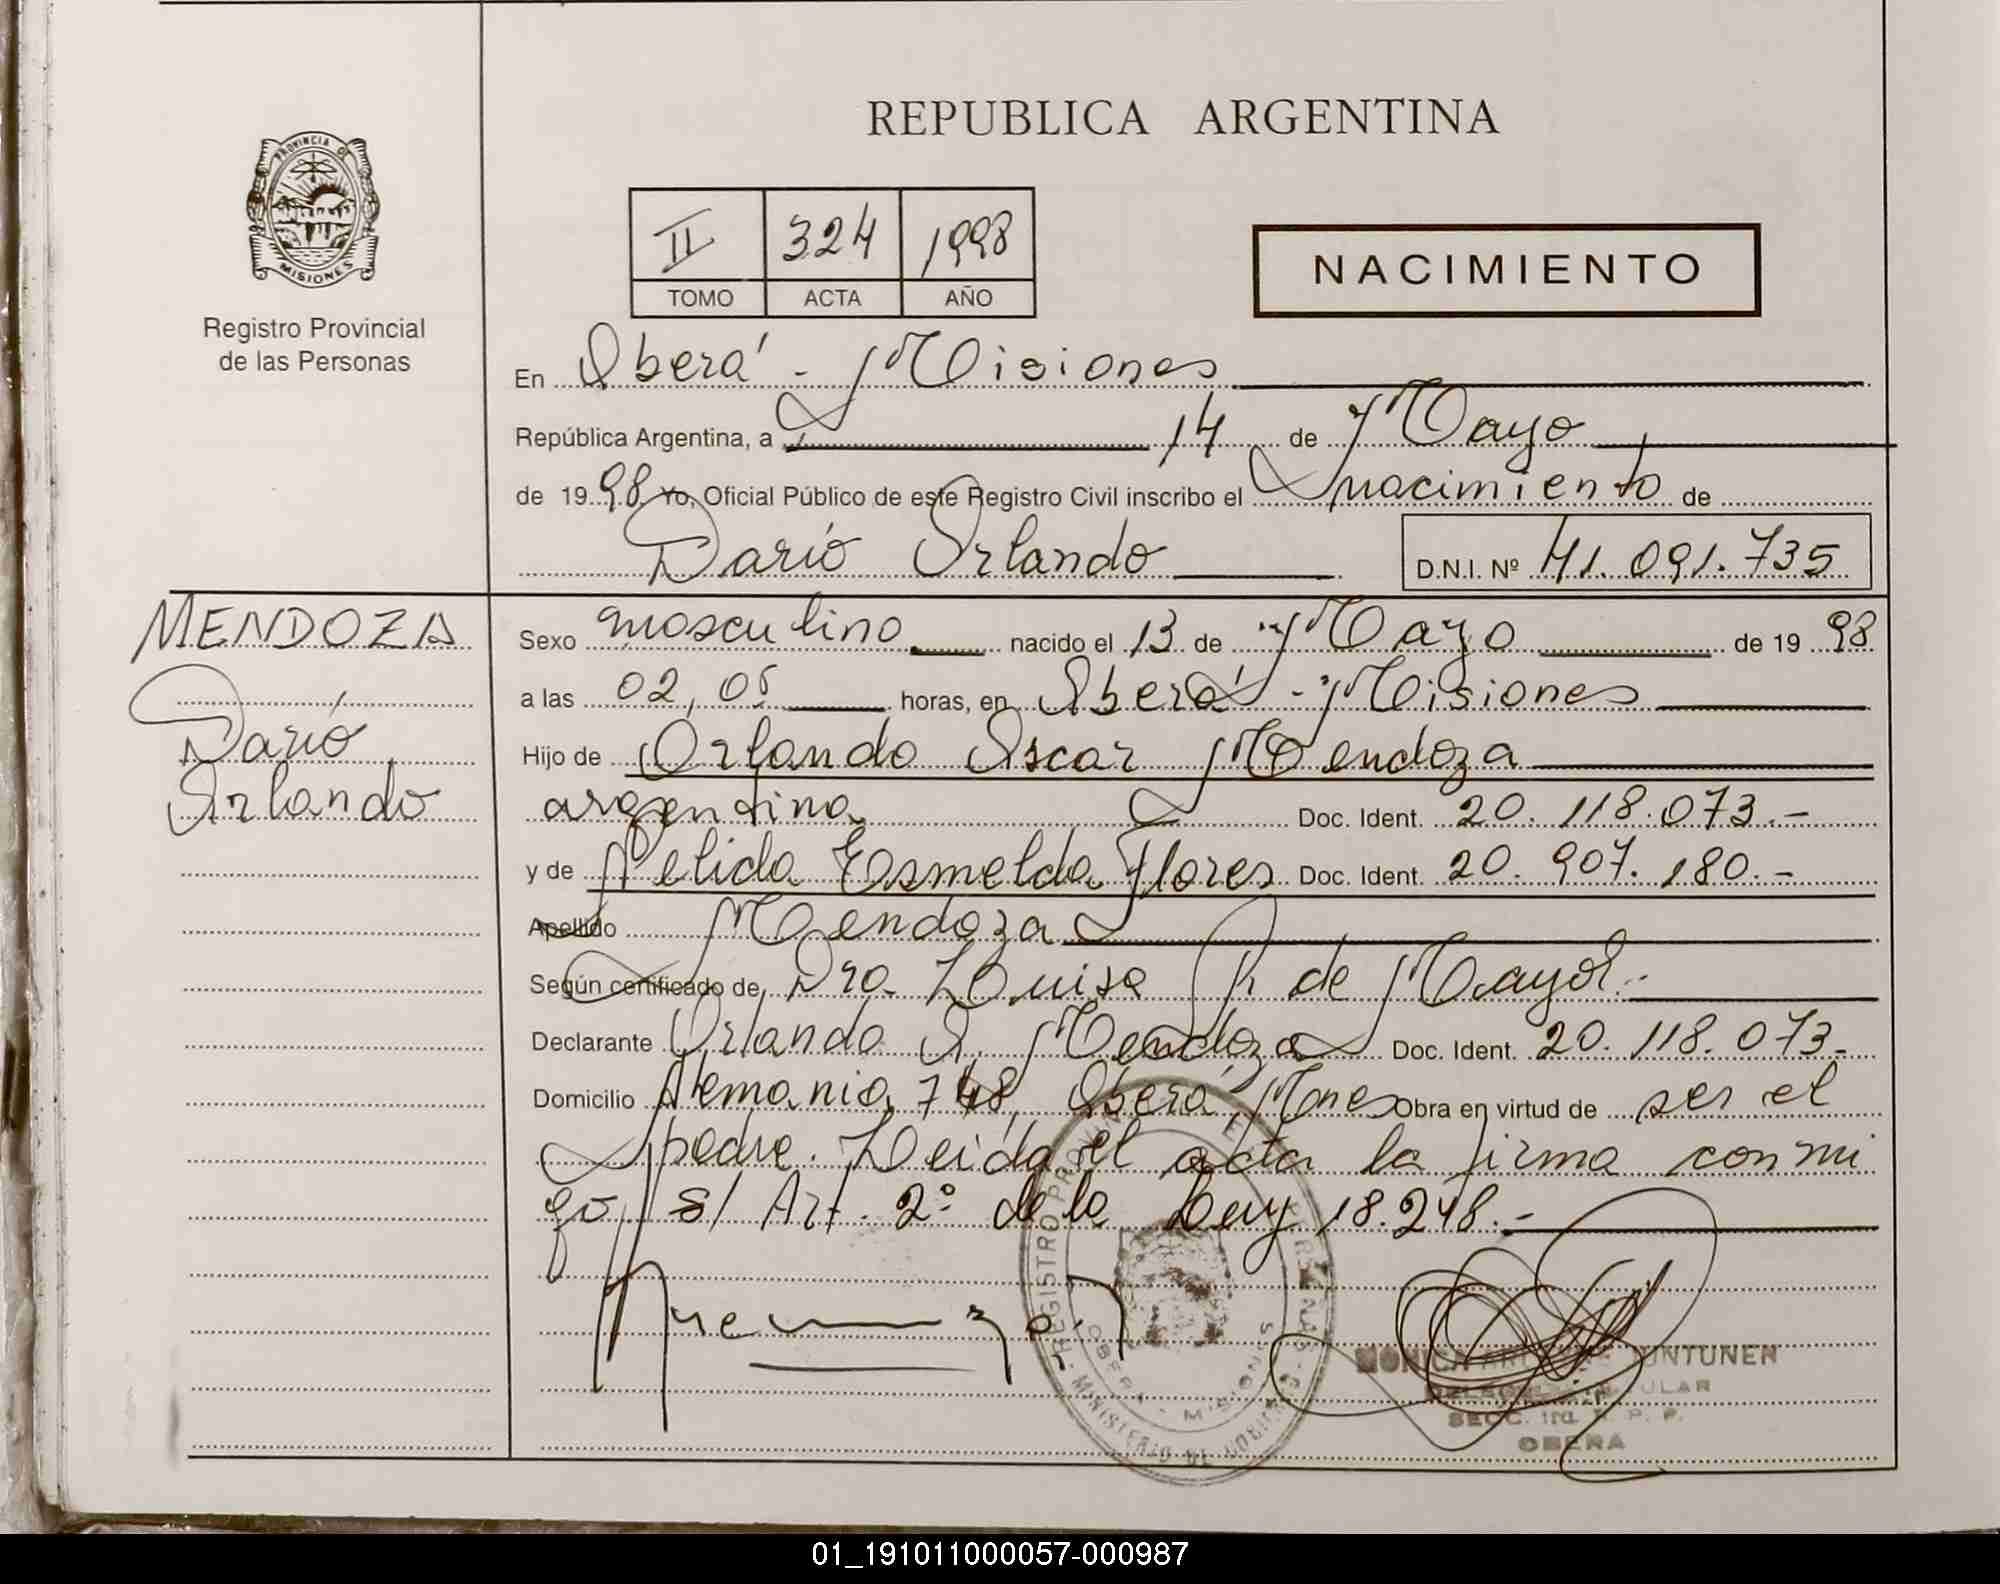 REPUBLICA ARGENTINA
PROVINCIA DE
MISIONES
Registro Provincial
de las Personas
II 324 1998
TOMO ACTA AÑO
NACIMIENTO
En Oberá - Misiones
República Argentina, a 14 de Mayo
de 1998 Yo, Oficial Público de este Registro Civil inscribo el nacimiento de
Darío Orlando D.N.I. Nº 41.091.735
MENDOZA
Darío
Orlando
Sexo masculino nacido el 13 de Mayo de 1998
a las 02,05 horas, en Oberá - Misiones
Hijo de Orlando Oscar Mendoza
argentina Doc. Ident. 20.118.073.-
y de Nelida Esmelda Flores Doc. Ident. 20.907.180.-
Apellido Mendoza
Según certificado de Dra. Luisa R de Mayol.-
Declarante Orlando O. Mendoza Doc. Ident. 20.118.073.-
Domicilio Alemania 748, Oberá, Mnes Obra en virtud de ser el
padre. Leída el acta la firma conmi
go s/ Art. 2º de la Ley 18.248.-
REGISTRO PROVINCIAL DE LAS PERSONAS
OBERA - MISIONES
MINISTERIO DE GOBIERNO
MONICA UNTUNEN
SECC. 1ra. R. P. P.
OBERA
01_191011000057-000987